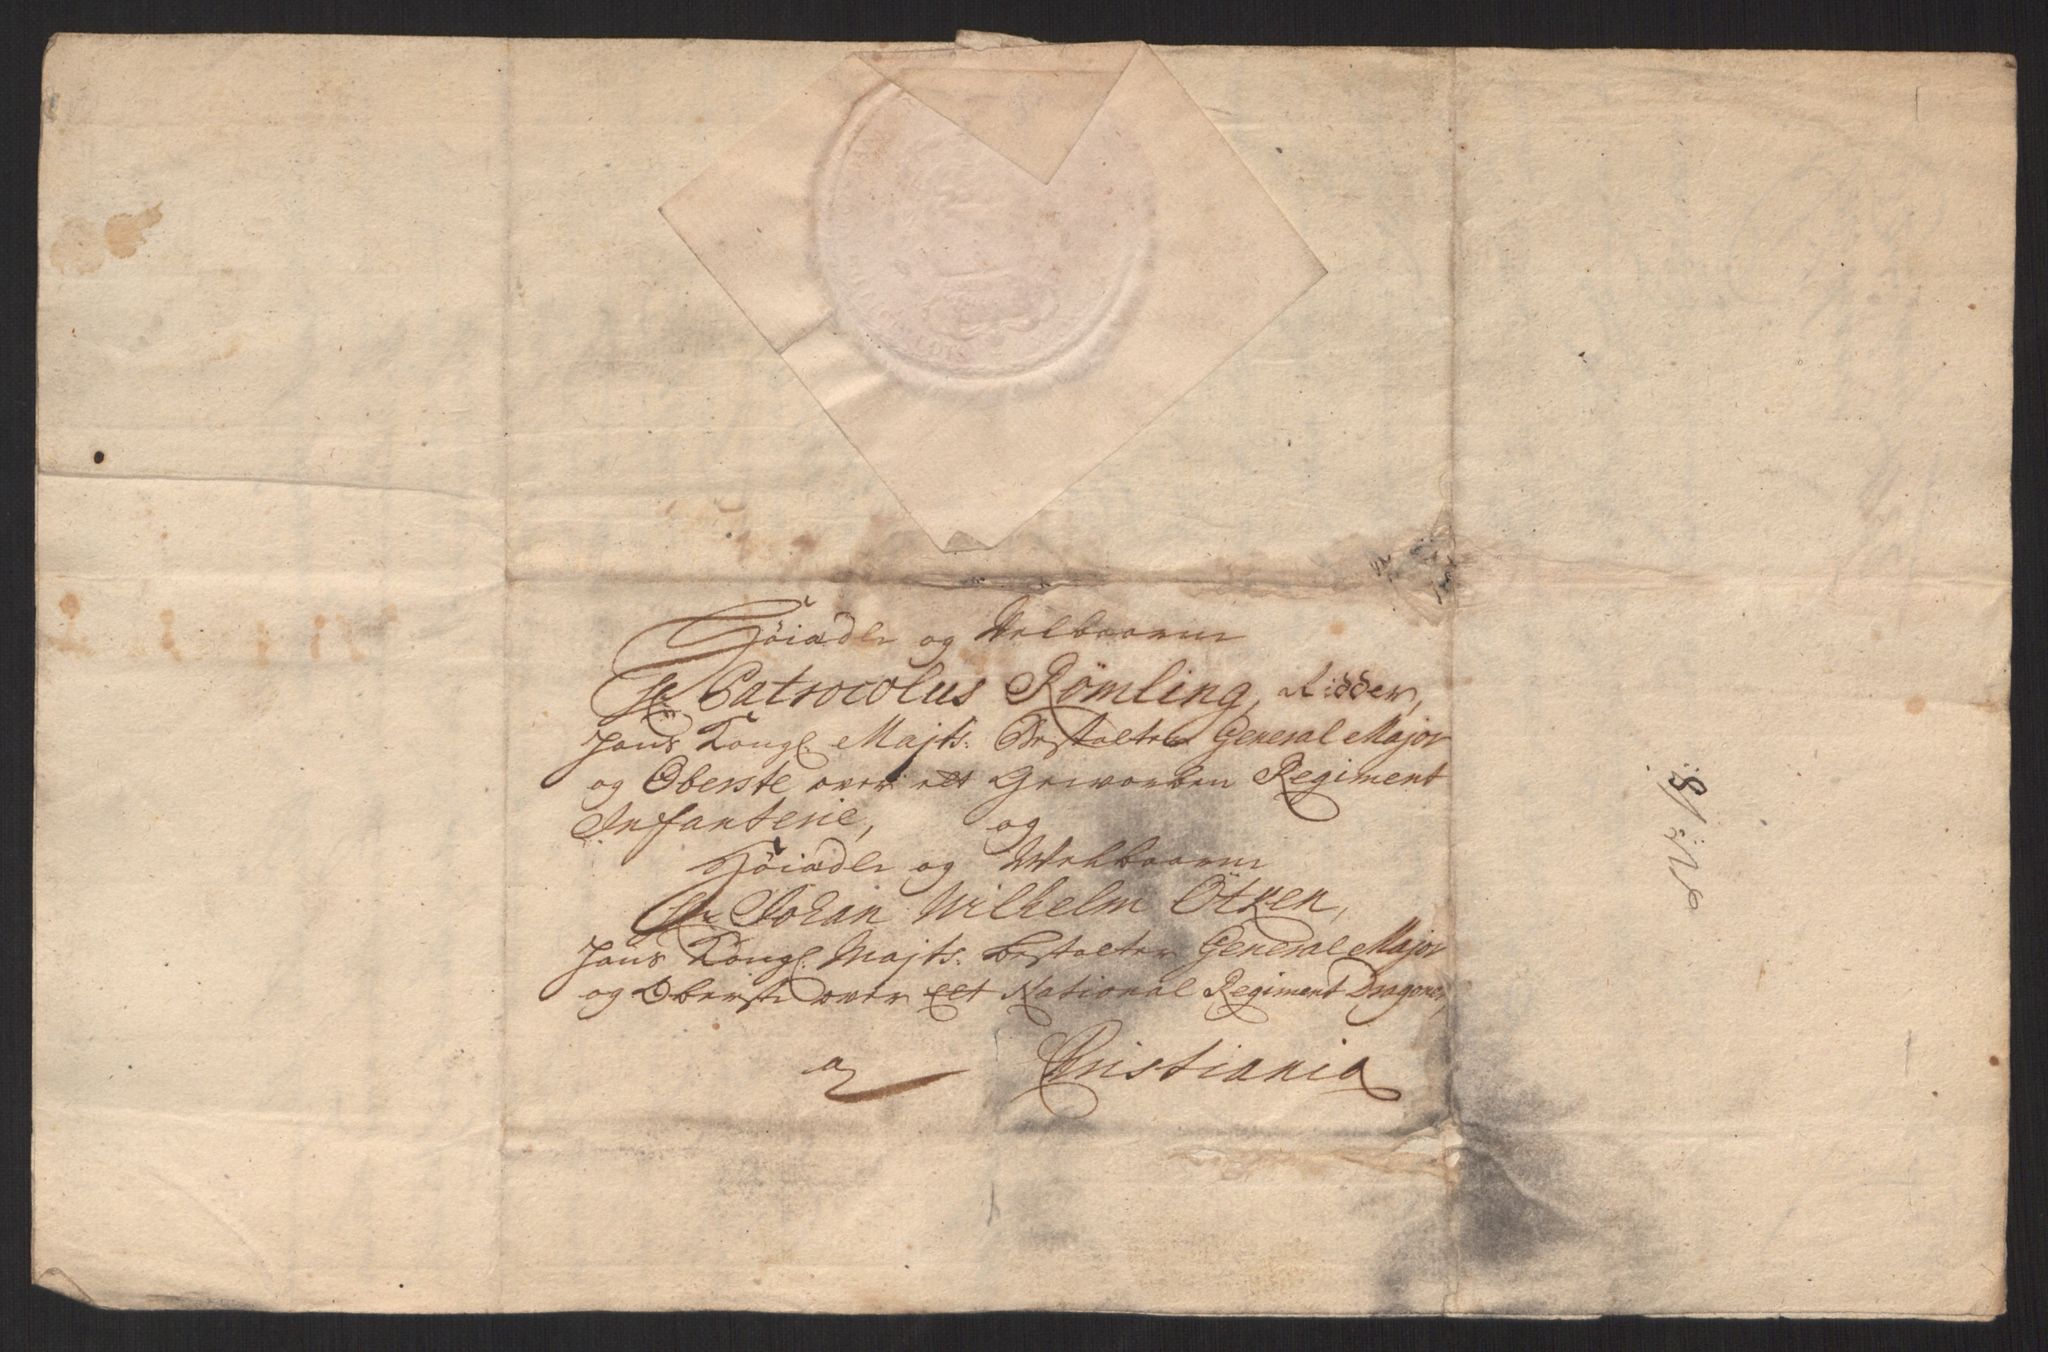 Höiædle og Velbaarne
Hr Patrocolus Römling, Ridder,
Hans Kongl. Majts. Bestalter General Major
og Oberste over ett Gevorben Regiment
Infanterie, og
Höiædle og Velbaarne
Hr Johan Wilhelm Ötken,
Hans Kongl. Majts. bestalter General Major
og Oberste over ett National Regiment Dragoner,
a Cristiania
No: 18: